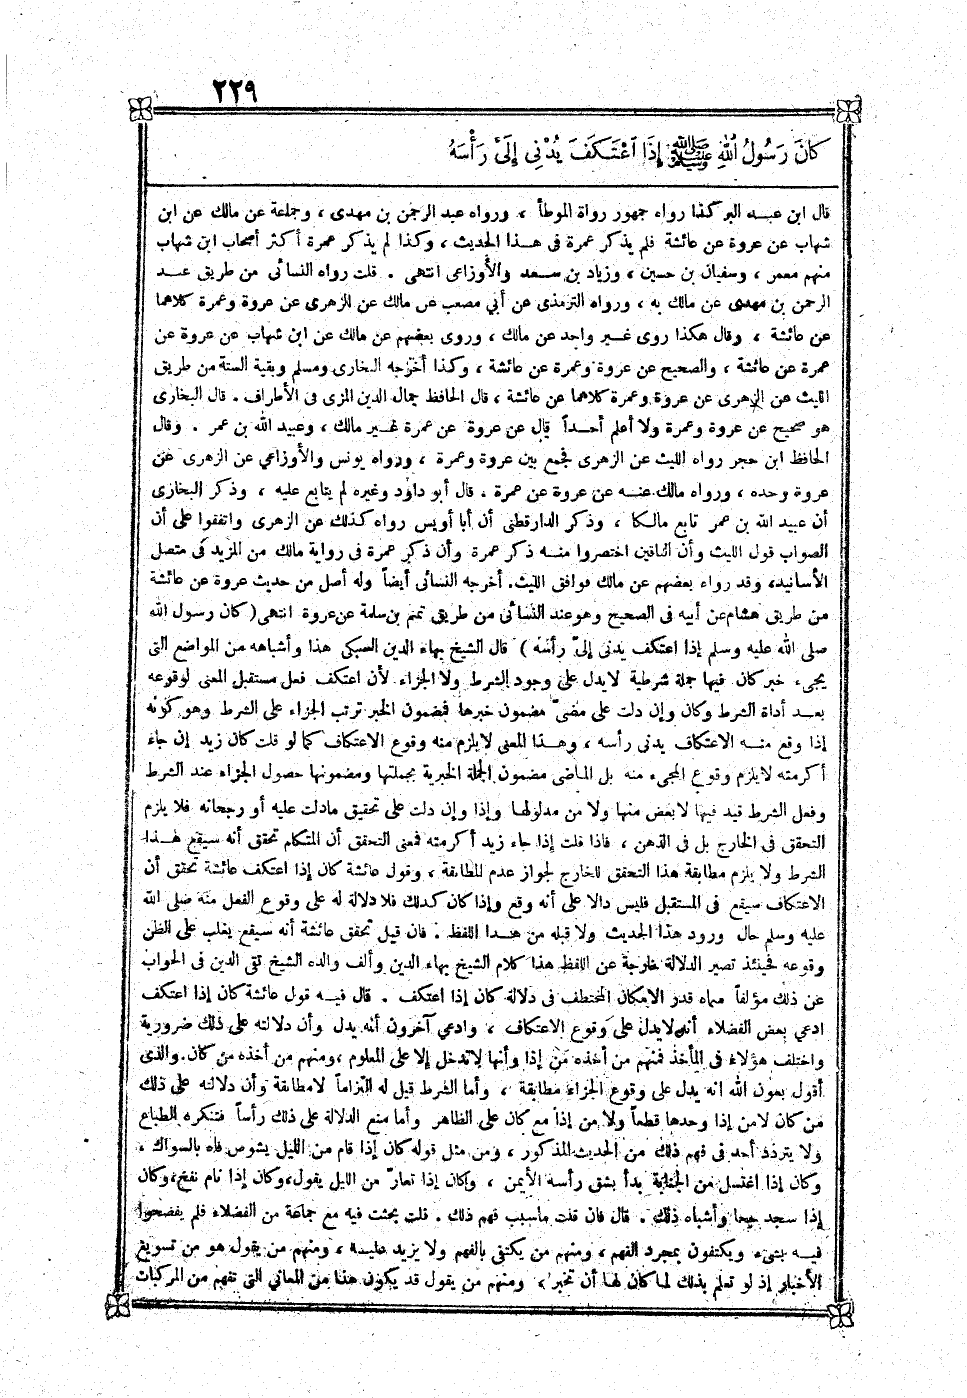 ٢٢٩
كَانَ رَسُولُ اللهِ ﷺ إِذَا اعْتَكَفَ يُدْنِي إِلَىَّ رَأْسَهُ
قال ابن عبد البر كذا رواه جمهور رواة الموطأ ، ورواه عبد الرحمن بن مهدى ، وجماعة عن مالك عن ابن
شهاب عن عروة عن عائشة فلم يذكر عمرة فى هذا الحديث ، وكذا لم يذكر عمرة أكثر أصحاب ابن شهاب
منهم معمر ، وسفيان بن حسين ، وزياد بن سعد والأوزاعى انتهى . قلت رواه النسائى من طريق عبد
الرحمن بن مهدى عن مالك به ، ورواه الترمذى عن أبي مصعب عن مالك عن الزهرى عن عروة وعمرة كلاهما
عن عائشة ، وقال هكذا روى غير واحد عن مالك ، وروى بعضهم عن مالك عن ابن شهاب عن عروة عن
عمرة عن عائشة ، والصحيح عن عروة وعمرة عن عائشة ، وكذا أخرجه البخارى ومسلم وبقية الستة من طريق
الليث عن الزهرى عن عروة وعمرة كلاهما عن عائشة ، قال الحافظ جمال الدين المزى فى الأطراف . قال البخارى
هو صحيح عن عروة وعمرة ولا أعلم أحداً قال عن عروة عن عمرة غير مالك ، وعبيد الله بن عمر . وقال
الحافظ ابن حجر رواه الليث عن الزهرى فجمع بين عروة وعمرة ، ورواه يونس والأوزاعي عن الزهرى عن
عروة وحده ، ورواه مالك عنه عن عروة عن عمرة . قال أبو داود وغيره لم يتابع عليه ، وذكر البخارى
أن عبيد الله بن عمر تابع مالكا ، وذكر الدارقطنى أن أبا أويس رواه كذلك عن الزهرى واتفقوا على أن
الصواب قول الليث وأن الباقين اختصروا منه ذكر عمرة وأن ذكر عمرة فى رواية مالك من المزيد فى متصل
الأسانيد، وقد رواه بعضهم عن مالك فوافق الليث. أخرجه النسائى أيضاً وله أصل من حديث عروة عن عائشة
من طريق هشام عن أبيه فى الصحيح وهو عند النسائى من طريق تميم بن سلمة عن عروة انتهى (كان رسول الله
صلى الله عليه وسلم إذا اعتكف يدنى إلىّ رأسه ) قال الشيخ بهاء الدين السبكى هذا وأشباهه من المواضع التى
يجىء خبر كان فيها جملة شرطية لا يدل على وجود الشرط ولا الجزاء لأن اعتكف فعل مستقبل المعنى لوقوعه
بعد أداة الشرط وكان وإن دلت على مضىّ مضمون خبرها فمضمون الخبر ترتب الجزاء على الشرط وهو كونه
إذا وقع منه الاعتكاف يدنى رأسه ، وهذا المعنى لا يلزم منه وقوع الاعتكاف كما لو قلت كان زيد إن جاء
أكرمته لا يلزم وقوع المجىء منه بل الماضى مضمون الجملة الخبرية بجملتها ومضمونها حصول الجزاء عند الشرط
وفعل الشرط قيد فيها لا بعض منها ولا من مدلولها وإذا وإن دلت على تحقيق مادلت عليه أو رجحانه فلا يلزم
التحقق فى الخارج بل فى الذهن ، فاذا قلت إذا جاء زيد أكرمته فمعنى التحقق أن المتكلم تحقق أنه سيقع هذا
الشرط ولا يلزم مطابقة هذا التحقق للخارج لجواز عدم المطابقة ، وقول عائشة كان إذا اعتكف عائشة تحقق أن
الاعتكاف سيقع فى المستقبل فليس دالا على أنه وقع وإذا كان كذلك فلا دلالة له على وقوع الفعل منه صلى الله
عليه وسلم حال ورود هذا الحديث ولا قبله من هذا اللفظ . فان قيل تحقق عائشة أنه سيقع يغلب على الظن
وقوعه فحينئذ تصير الدلالة خارجة عن اللفظ هذا كلام الشيخ بهاء الدين وألف والده الشيخ تقى الدين فى الجواب
عن ذلك مؤلفاً سماه قدر الامكان المختطف فى دلالة كان إذا اعتكف . قال فيه قول عائشة كان إذا اعتكف
ادعي بعض الفضلاء أنه لا يدل على وقوع الاعتكاف ، وادعي آخرون أنه يدل وأن دلالته على ذلك ضرورية
واختلف هؤلاء فى المأخذ فمنهم من أخذه من إذا وأنها لا تدخل إلا على المعلوم ، ومنهم من أخذه من كان. والذى
أقول بعون الله انه يدل على وقوع الجزاء مطابقة ، وأما الشرط قبل له التزاماً لا مطابقة وأن دلالته على ذلك
من كان لا من إذا وحدها قطعاً ولا من إذا مع كان على الظاهر وأما منع الدلالة على ذلك رأساً فتنكره الطباع
ولا يتردد أحد فى فهم ذلك من الحديث المذكور ، ومن مثل قوله كان إذا قام من الليل يشوص فاه بالسواك ،
وكان إذا اغتسل من الجنابة بدأ بشق رأسه الأيمن ، وكان إذا تعارّ من الليل يقول، وكان إذا نام نفخ، وكان
إذا سجد جخا وأشباه ذلك . قال فان قلت ماسبب فهم ذلك . قلت بحثت فيه مع جماعة من الفضلاء فلم يفصحوا
فيه بشىء ويكتفون بمجرد الفهم ، ومنهم من يكتفى بالفهم ولا يزيد عليه ، ومنهم من يقول هو من تسويغ
الأخبار إذ لو تعلم بذلك لما كان لها أن تخبر ، ومنهم من يقول قد يكون هذا من المعاني التى تفهم من المركبات